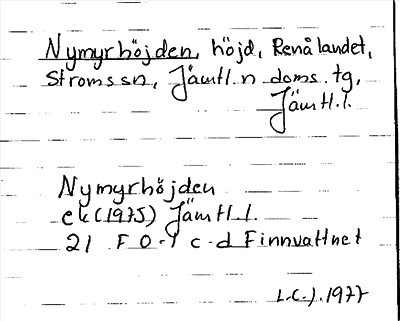 Nymyrhöjden, höjd, Renålandet,
Ströms sn, Jämtl. n doms. tg,
Jämtl. l.
Nymyrhöjden
ek (1975) Jämtl l.
21 F 0-1 c-d Finnvattnet
L.C.J. 1977